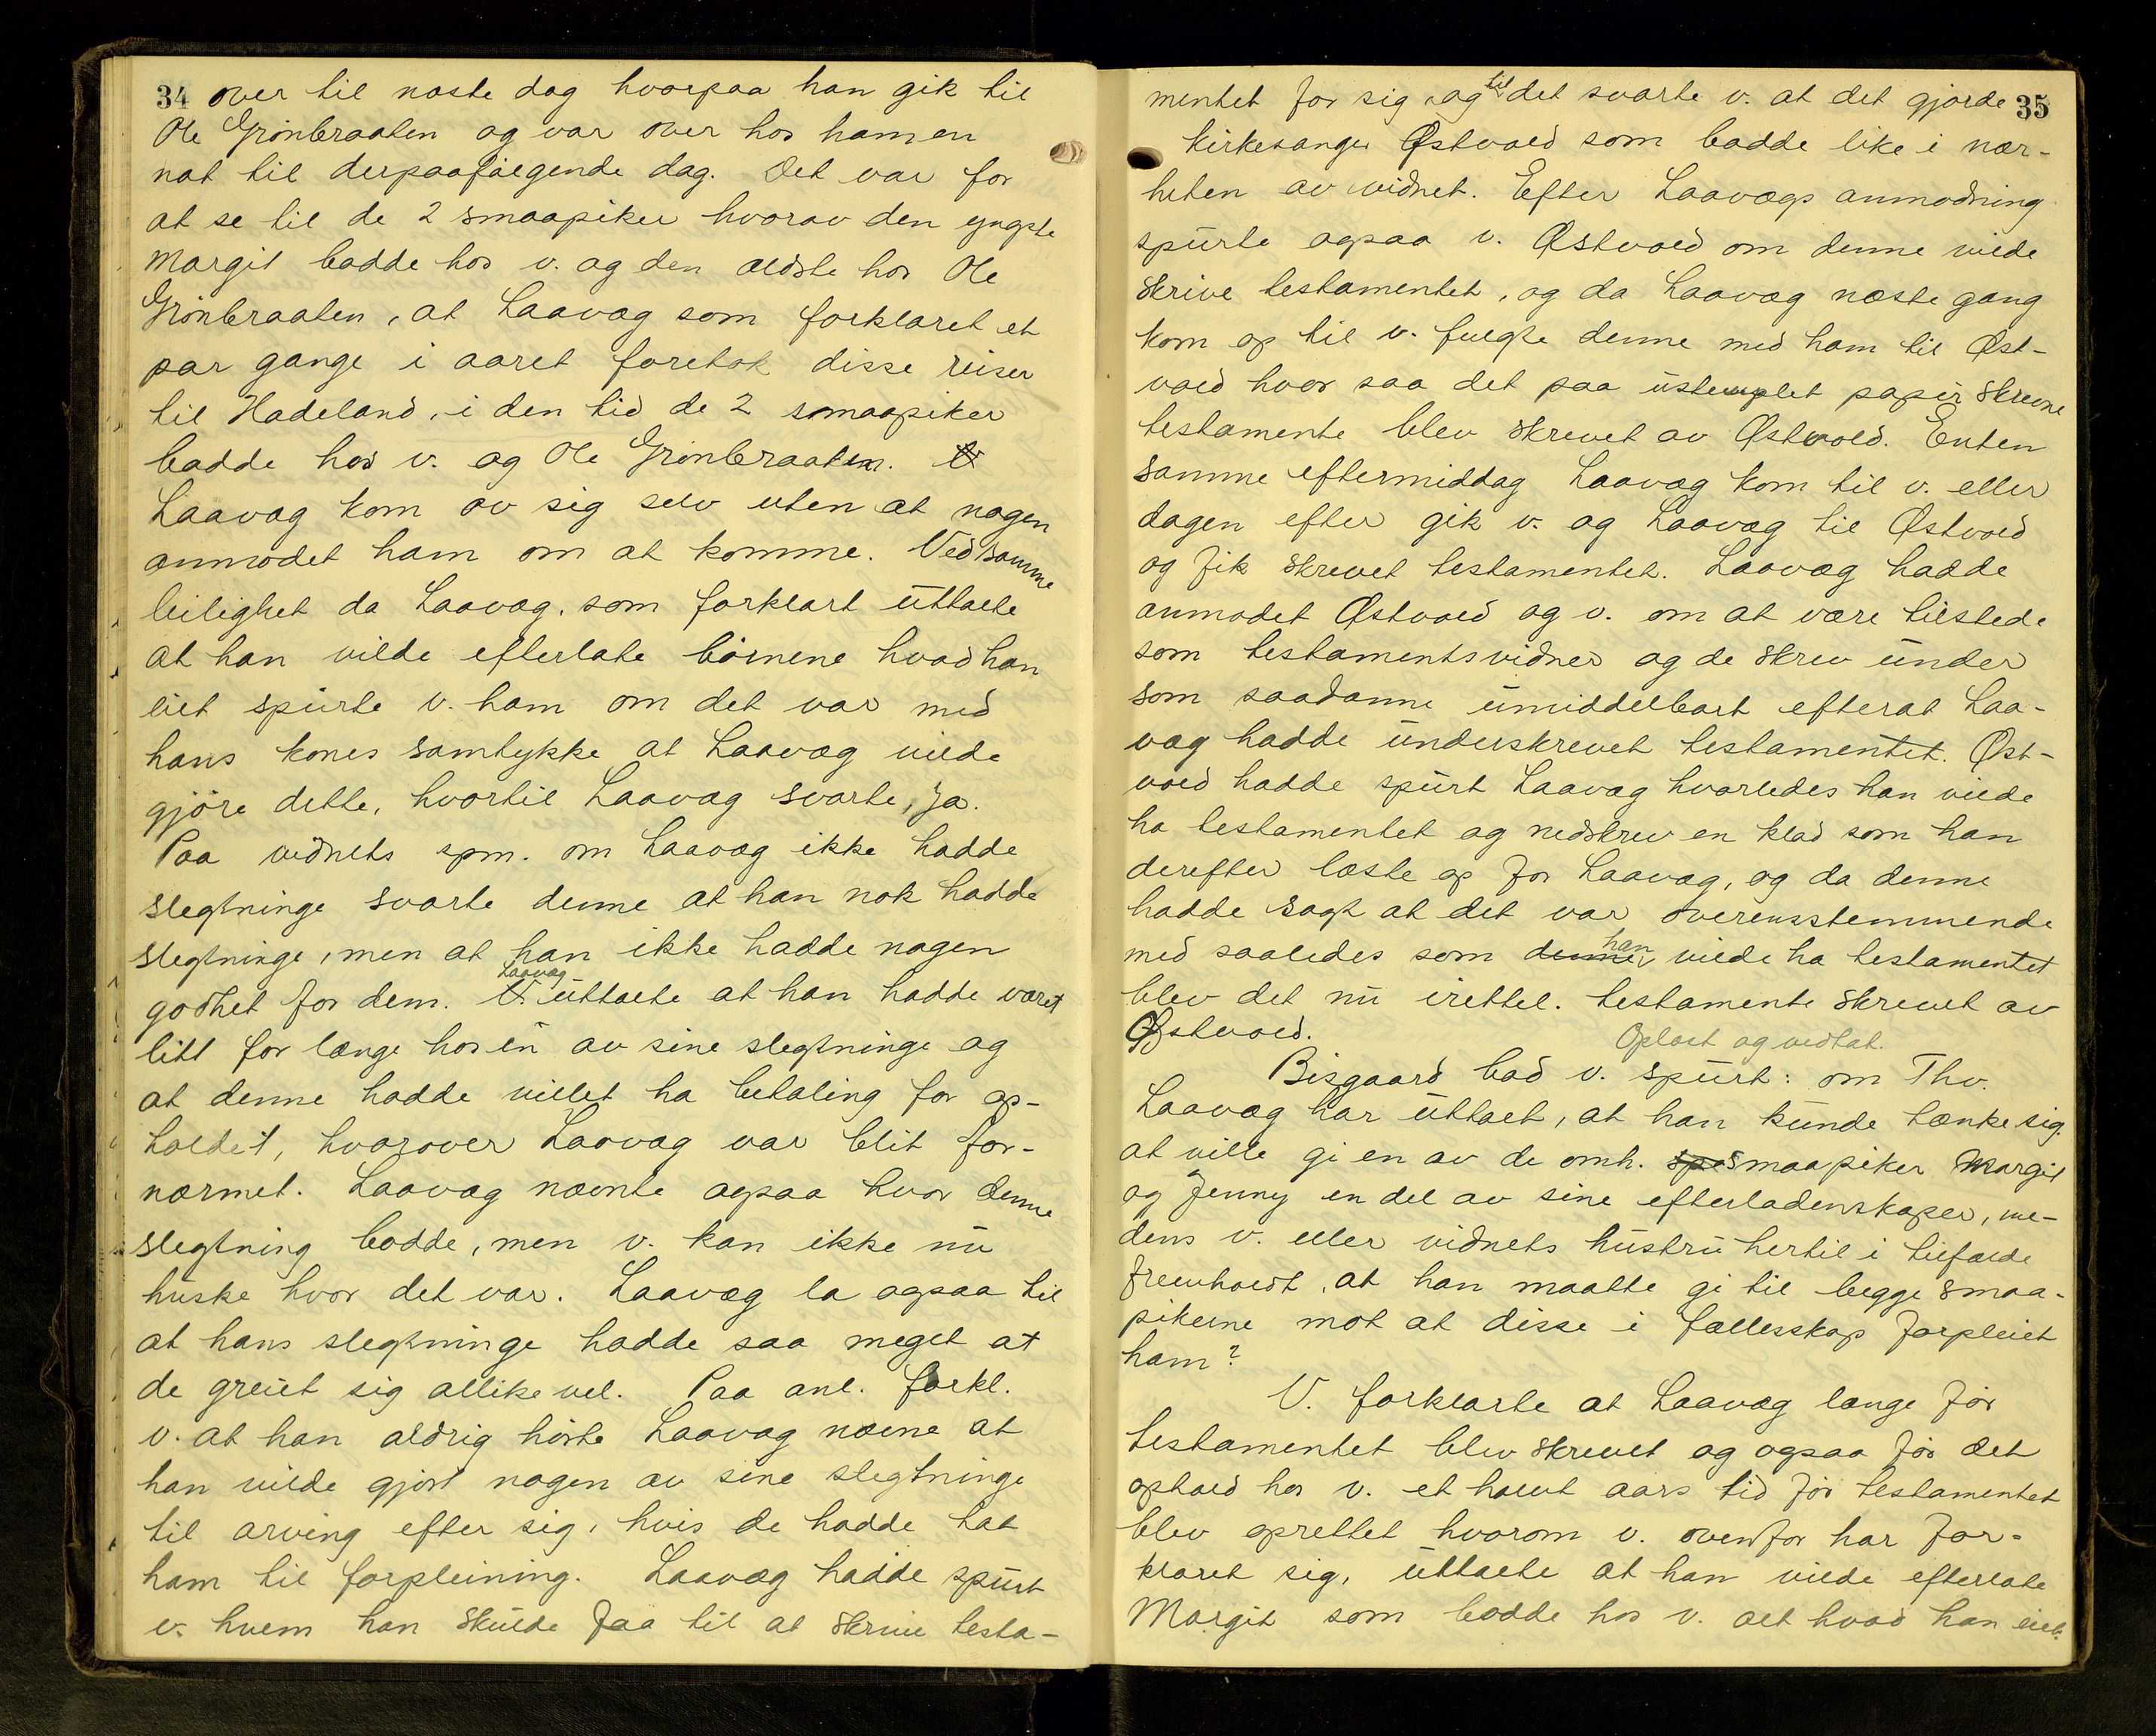 34 over til næste dag hvorpaa han gik til
Ole Grönbraaten og var over hos ham en
nat til derpaafölgende dag. Det var for
at se til de 2 smaapiker hvorav den yngste
Margit bodde hos v. og den ældste hos Ole
Grönbraaten, at Laavag som forklaret et
par gange i aaret foretok disse reiser
til Hadeland, i den tid de 2 smaapiker
bodde hos v. og Ole Grönbraaten. V
Laavag kom av sig selv uten at nogen
anmodet ham om at komme. Ved samme
leilighet da Laavag, som forklart uttalte
at han vilde efterlate börnene hvad han
eiet spurte v. ham om det var med
hans kones samtykke at Laavag vilde
gjöre dette, hvortil Laavag svarte, ja.
Paa vidnets spm. om Laavag ikke hadde
slegtninge svarte denne at han nok hadde
slegtninge, men at han ikke hadde nogen
godhet for dem. V. Laavag uttalte at han hadde været
litt for længe hos en av sine slegtninge og
at denne hadde villet ha betaling for op-
holdet, hvorover Laavag var blit for-
nærmet. Laavag nævnte ogsaa hvor denne
slegtning bodde, men v. kan ikke nu
huske hvor det var. Laavag la ogsaa til
at hans slegtninge hadde saa meget at
de greiet sig allikevel. Paa anl. forkl.
v. at han aldrig hörte Laavag nævne at
han vilde gjort nogen av sine slegtninge
til arving efter sig, hvis de hadde tat
ham til forpleining. Laavag hadde spurt
v. hvem han skulde faa til at skrive testa-
mentet for sig og til det svarte v. at det gjorde 35
kirkesanger Østvold som bodde like i nær-
heten av vidnet. Efter Laavags anmodning
spurte ogsaa v. Østvold om denne vilde
skrive testamentet, og da Laavag næste gang
kom op til v. fulgte denne med ham til Øst-
vold hvor saa det paa ustemplet papir skrevne
testamente blev skrevet av Østvold. Enten
samme eftermiddag Laavag kom til v. eller
dagen efter gik v. og Laavag til Østvold
og fik skrevet testamentet. Laavag hadde
anmodet Østvold og v. om at være tilstede
som testamentsvidner og de skrev under
som saadanne umiddelbart efterat Laa-
vag hadde underskrevet testamentet. Øst-
vold hadde spurt Laavag hvorledes han vilde
ha testamentet og nedskrev en klad som han
derefter læste op for Laavag, og da denne
hadde sagt at det var overensstemmende
med saaledes som denne han vilde ha testamentet
blev det nu irettel. testamente skrevet av
Østvold.
Oplæst og vedtat.
Bisgaard bad v. spurt: om Thv.
Laavag har uttalt, at han kunde tænke sig
at ville gi en av de omh. spe smaapiker Margit
og Jenny en del av sine efterladenskaper, me-
dens v. eller vidnets hustru hertil i tilfælde
fremholdt, at han maatte gi til begge smaa-
pikerne mot at disse i fællesskap forpleiet
ham?
V. forklarte at Laavag længe för
testamentet blev skrevet og ogsaa för det
ophold hos v. et halvt aars tid för testamentet
blev oprettet hvorom v. ovenfor har for-
klaret sig, uttalte at han vilde efterlate
Margit som bodde hos v. alt hvad han eiet.